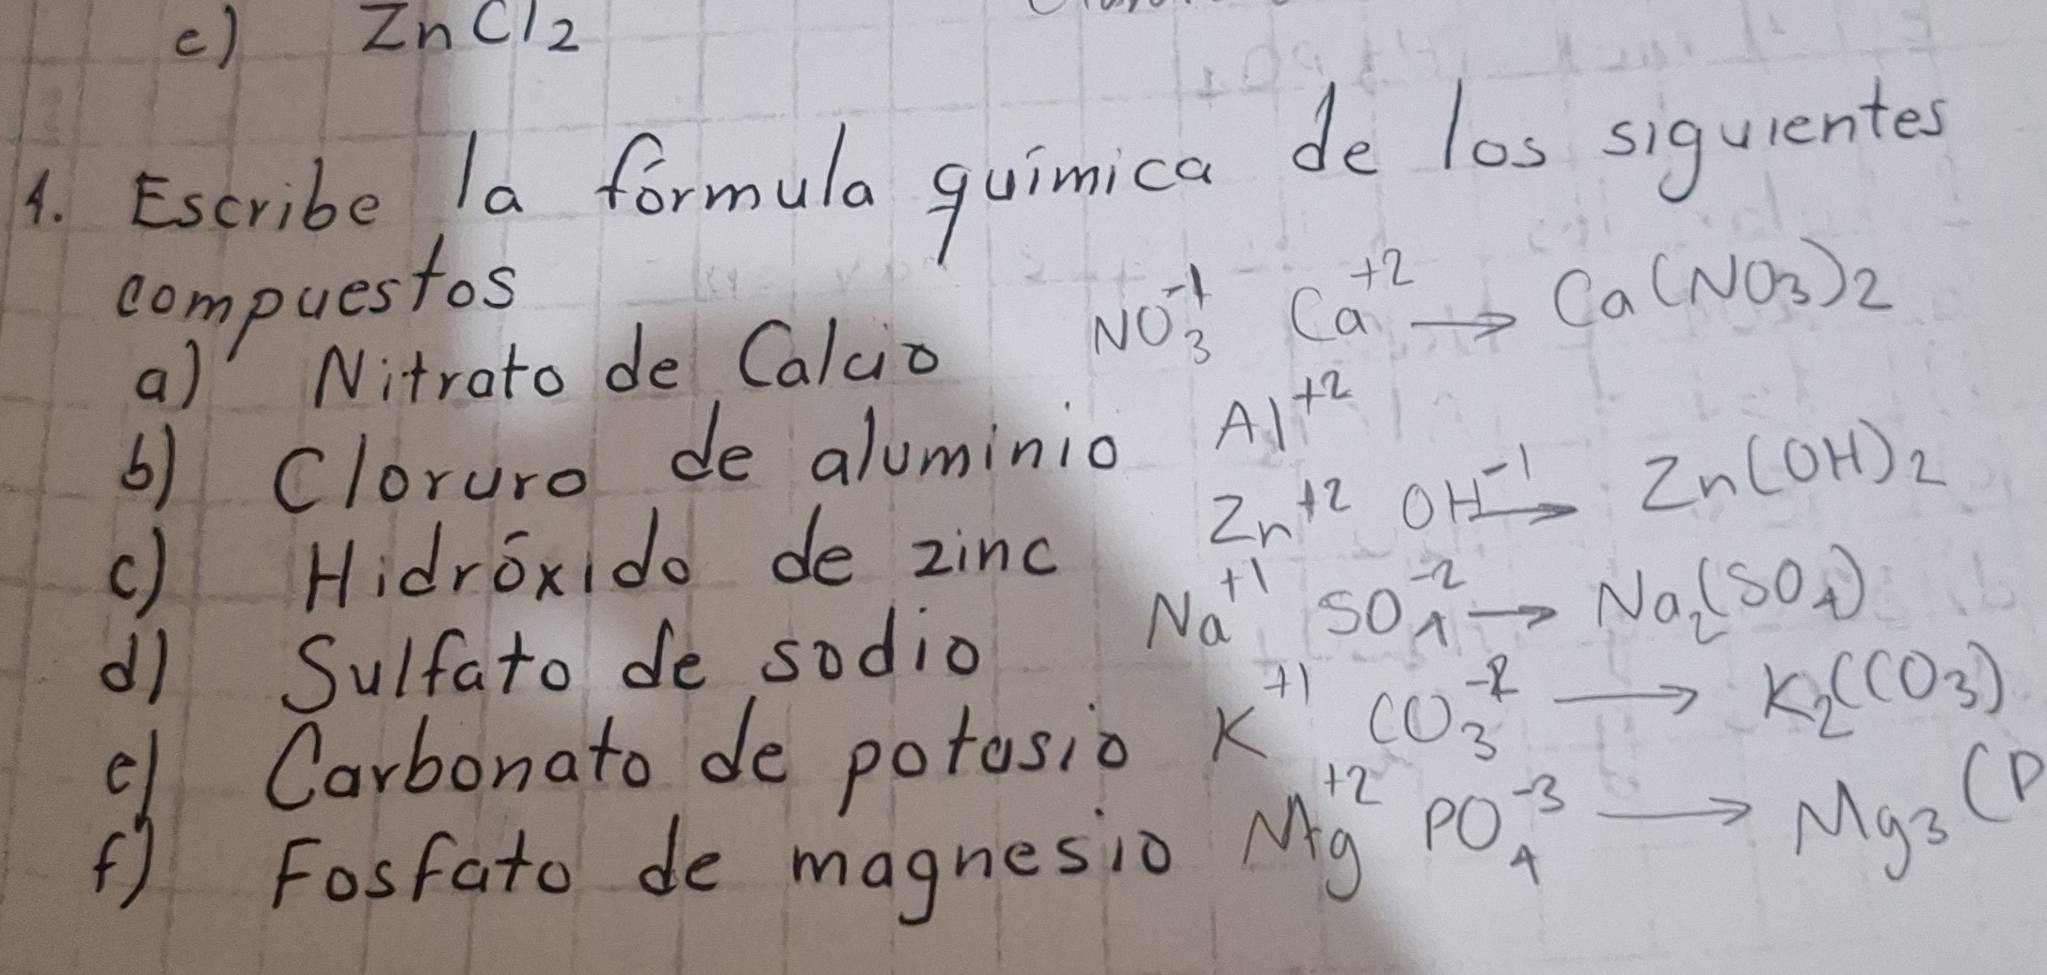 e) ZnCl2
4. Escribe la fórmula química de los siguientes
compuestos
a) Nitrato de Calcio NO3-1 Ca+2 → Ca(NO3)2
b) Cloruro de aluminio Al+2
c) Hidróxido de zinc Zn+2 OH-1 → Zn(OH)2
d) Sulfato de sodio Na+1 SO4-2 → Na2(SO4)
e) Carbonato de potasio K+1 CO3-2 → K2(CO3)
f) Fosfato de magnesio Mg+2 PO4-3 → Mg3(P